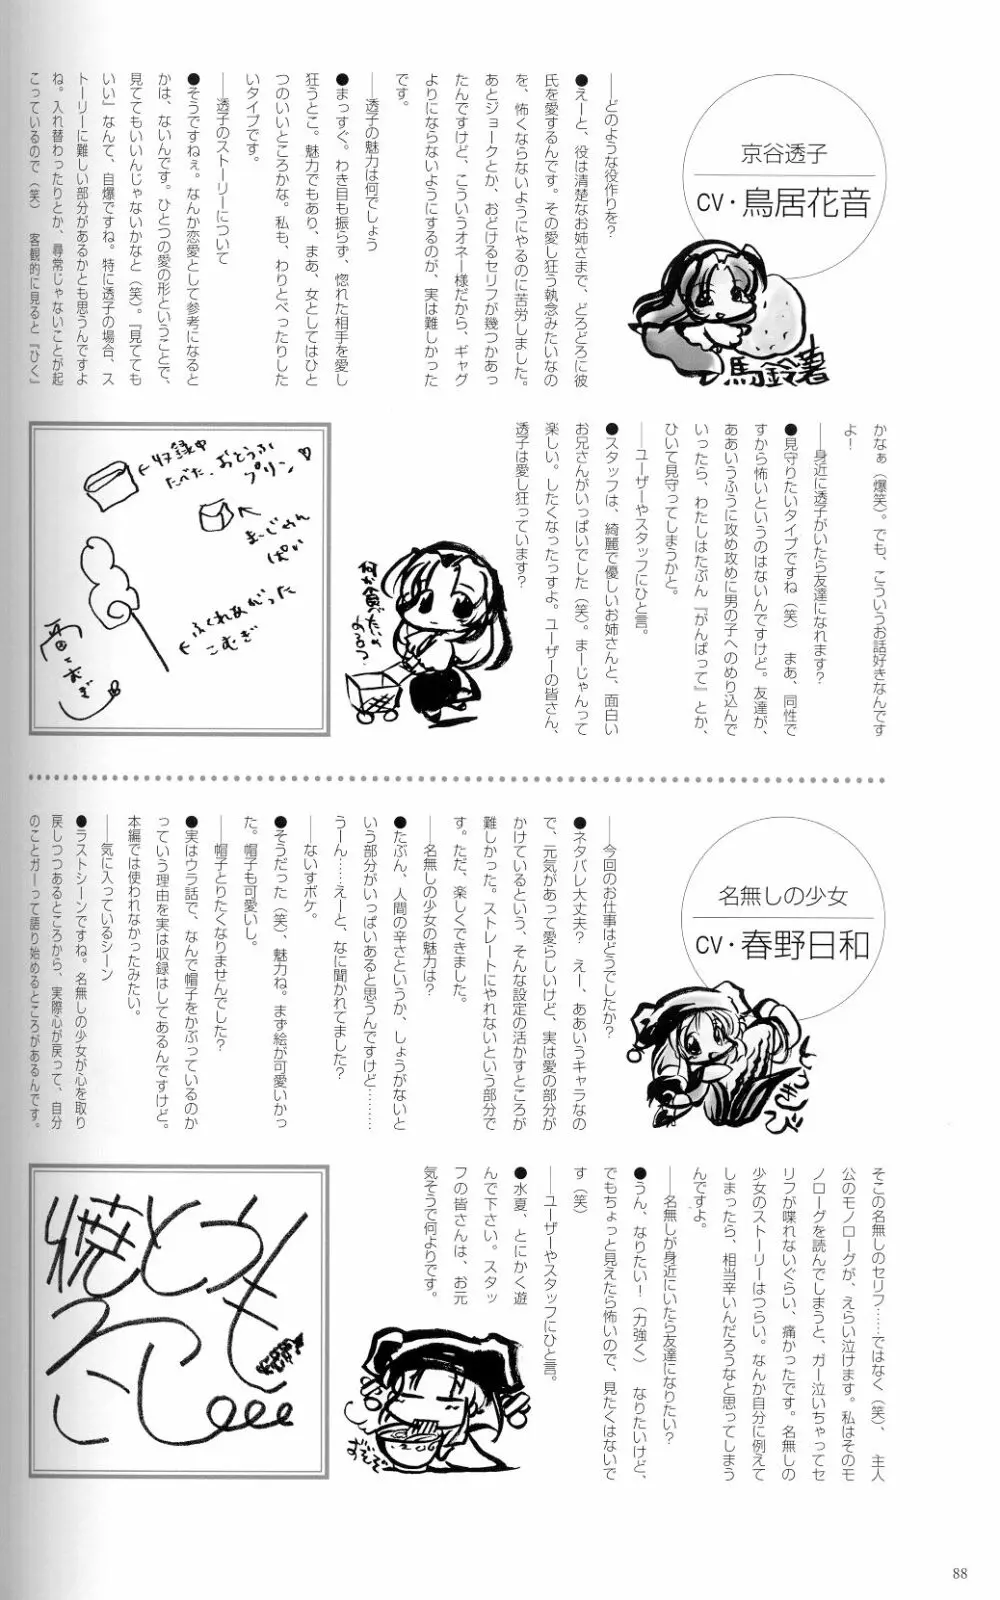 京谷透子
CV・鳥居花音
馬鈴薯
――どのような役作りを?
●えーと、役は清楚なお姉さまで、どろどろに彼
氏を愛するんです。その愛し狂う執念みたいなの
を、怖くならないようにやるのに苦労しました。
あとジョークとか、おどけるセリフが幾つかあっ
たんですけど、こういうオネー様だから、ギャグ
よりにならないようにするのが、実は難しかった
です。
――透子の魅力は何でしょう
●まっすぐ。わき目も振らず、惚れた相手を愛し
狂うとこ。魅力でもあり、まあ、女としてはひと
つのいいところかな。私も、わりとべったりした
いタイプです。
――透子のストーリーについて
●そうですねぇ。なんか恋愛として参考になると
かは、ないんです。ひとつの愛の形ということで、
見ててもいいんじゃないかなと(笑)。『見てても
いい』なんて、自爆ですね。特に透子の場合、ス
トーリーに難しい部分があるかとも思うんですよ
ね。入れ替わったりとか、尋常じゃないことが起
こっているので(笑) 客観的に見ると『ひく』
かなぁ(爆笑)。でも、こういうお話好きなんです
よ!
――身近に透子がいたら友達になれます?
●見守りたいタイプですね(笑) まあ、同性で
すから怖いというのはないんですけど。友達が、
ああいうふうに攻め攻めに男の子へのめり込んで
いったら、わたしはたぶん『がんばって』とか、
ひいて見守ってしまうかと。
――ユーザーやスタッフにひと言。
●スタッフは、綺麗で優しいお姉さんと、面白い
お兄さんがいっぱいでした(笑)。まーじゃんって
楽しい。したくなったっすよ。ユーザーの皆さん、
透子は愛し狂っています?
何か食べたいのある?
収録中
たべた、おとうふ
プリン♡
まーじゃん
ぱい
ふくれあがった
こむぎ
名無しの少女
CV・春野日和
――今回のお仕事はどうでしたか?
●ネタバレ大丈夫? えー、ああいうキャラなの
で、元気があって愛らしいけど、実は愛の部分が
かけているという、そんな設定の活かすところが
難しかった。ストレートにやれないという部分で
す。ただ、楽しくできました。
――名無しの少女の魅力は?
●たぶん、人間の辛さというか、しょうがないと
いう部分がいっぱいあると思うんですけど………
うーん……えーと、なに聞かれてました?
――ないすボケ。
●そうだった(笑)、魅力ね。まず絵が可愛いかっ
た。帽子も可愛いし。
――帽子とりたくなりませんでした?
●実はウラ話で、なんで帽子をかぶっているのか
っていう理由を実は収録はしてあるんですけど。
本編では使われなかったみたい。
――気に入っているシーン
●ラストシーンですね。名無しの少女が心を取り
戻しつつあるところから、実際心が戻って、自分
のことガーって語り始めるところがあるんです。
そこの名無しのセリフ……ではなく(笑)、 主人
公のモノローグが、えらい泣けます。私はそのモ
ノローグを読んでしまうと、ガー泣いちゃってセ
リフが喋れないぐらい、痛かったです。名無しの
少女のストーリーはつらい。なんか自分に例えて
しまったら、相当辛いんだろうなと思ってしまう
んですよ。
――名無しが身近にいたら友達になりたい?
●うん、なりたい!(力強く) なりたいけど、
でもちょっと見えたら怖いので、見たくはないで
す(笑)
――ユーザーやスタッフにひと言。
●水夏、とにかく遊
んで下さい。スタッ
フの皆さんは、お元
気そうで何よりです。
とうも